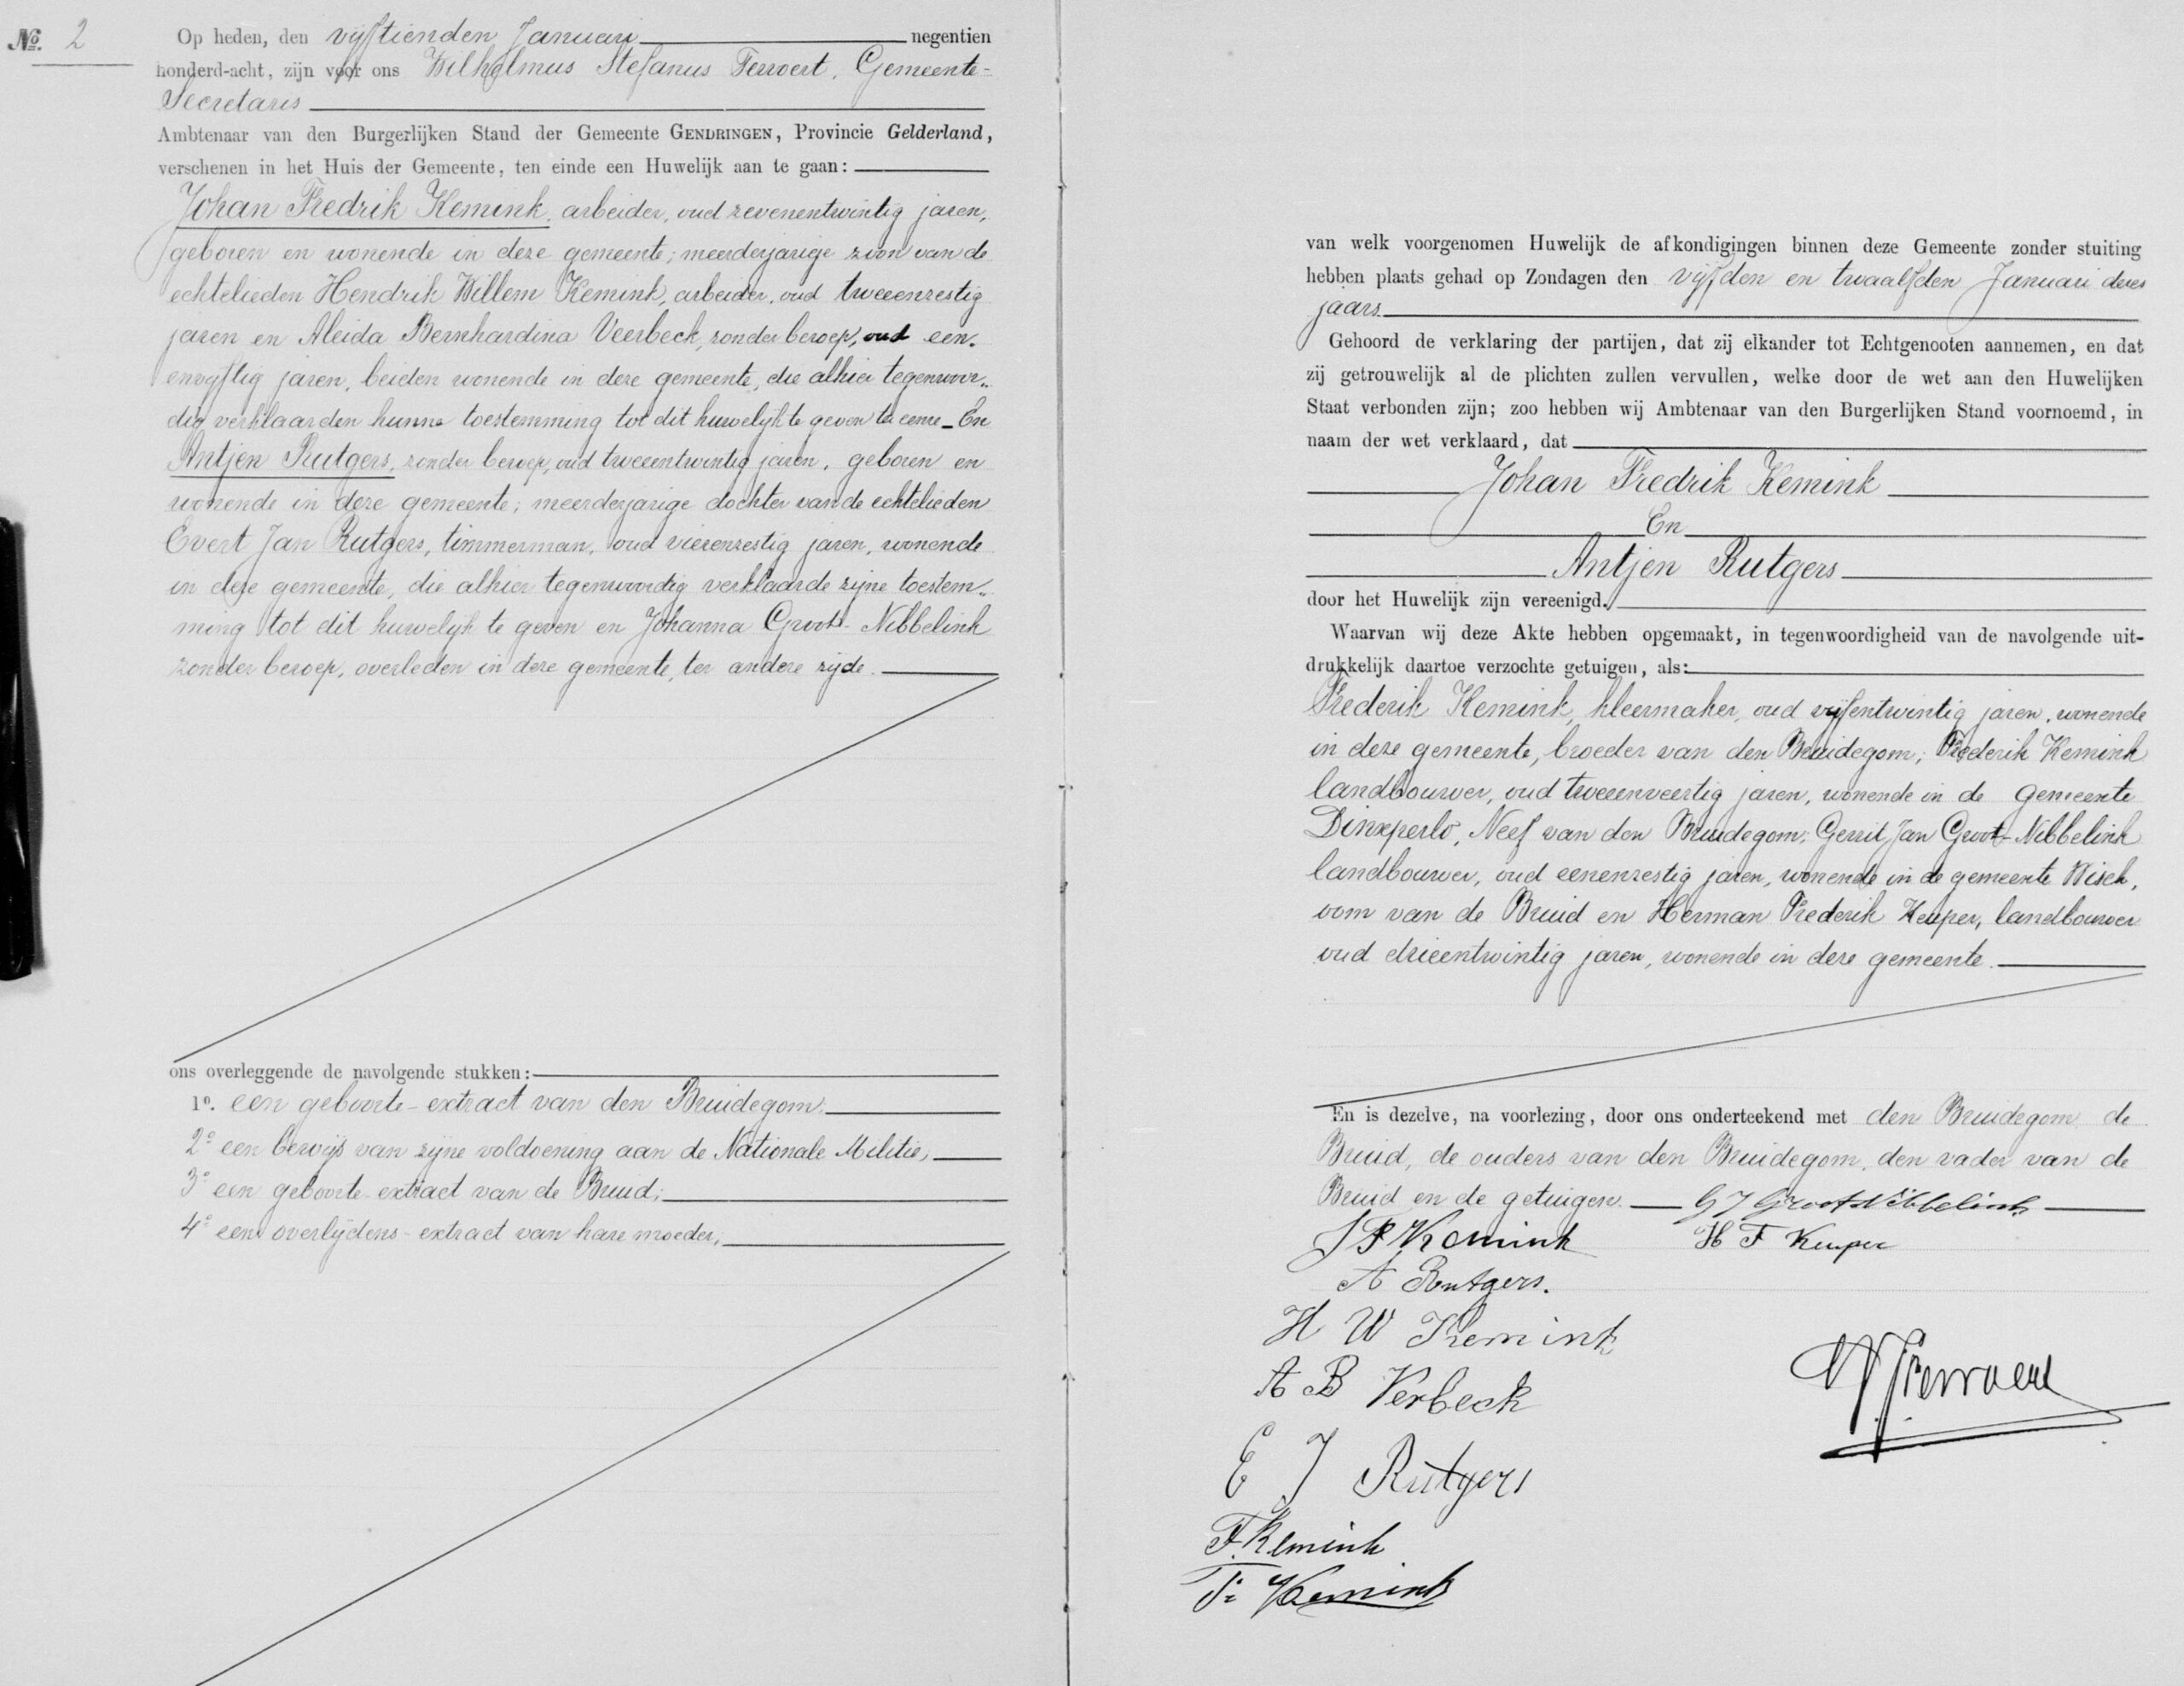 No. 2
Op heden, den vijftienden Januari negentien
honderd-acht, zijn voor ons Wilhelmus Stefanus Terwert, Gemeente-
Secretaris
Ambtenaar van den Burgerlijken Stand der Gemeente GENDRINGEN, Provincie Gelderland,
verschenen in het Huis der Gemeente, ten einde een Huwelijk aan te gaan:
Johan Fredrik Kemink, arbeider, oud zevenentwintig jaren,
geboren en wonende in deze gemeente; meerderjarige zoon van de
echtelieden Hendrik Willem Kemink, arbeider, oud tweeenzestig
jaren en Aleida Bernhardina Veerbeck, zonder beroep, oud een-
envijftig jaren, beiden wonende in deze gemeente, die alhier tegenwoor-
dig verklaarden hunne toestemming tot dit huwelijk te geven ter eenre _ En
Antjen Rutgers, zonder beroep, oud tweeentwintig jaren, geboren en
wonende in deze gemeente; meerderjarige dochter van de echtelieden
Evert Jan Rutgers, timmerman, oud vierenzestig jaren, wonende
in deze gemeente, die alhier tegenwoordig verklaarde zijne toestem-
ming tot dit huwelijk te geven en Johanna Groot-Nibbelink
zonder beroep, overleden in deze gemeente, ter andere zijde.
ons overleggende de navolgende stukken:
1o. een geboorte-extract van den Bruidegom.
2o een bewijs van zijne voldoening aan de Nationale Militie,
3o een geboorte-extract van de Bruid;
4o een overlijdens-extract van hare moeder,
van welk voorgenomen Huwelijk de afkondigingen binnen deze Gemeente zonder stuiting
hebben plaats gehad op Zondagen den vijfden en twaalfden Januari dezes
jaars.
Gehoord de verklaring der partijen, dat zij elkander tot Echtgenooten aannemen, en dat
zij getrouwelijk al de plichten zullen vervullen, welke door de wet aan den Huwelijken
Staat verbonden zijn; zoo hebben wij Ambtenaar van den Burgerlijken Stand voornoemd, in
naam der wet verklaard, dat
Johan Fredrik Kemink
En
Antjen Rutgers
door het Huwelijk zijn vereenigd.
Waarvan wij deze Akte hebben opgemaakt, in tegenwoordigheid van de navolgende uit-
drukkelijk daartoe verzochte getuigen, als:
Frederik Kemink, kleermaker, oud vijfentwintig jaren, wonende
in deze gemeente, broeder van den Bruidegom; Frederik Kemink
landbouwer, oud tweeenveertig jaren, wonende in de gemeente
Dinxperlo, Neef van den Bruidegom; Gerrit Jan Groot-Nibbelink
landbouwer, oud eenenzestig jaren, wonende in de gemeente Wisch,
oom van de Bruid en Herman Frederik Keuper, landbouwer
oud drieentwintig jaren, wonende in deze gemeente.
En is dezelve, na voorlezing, door ons onderteekend met den Bruidegom, de
Bruid, de ouders van den Bruidegom, den vader van de
Bruid en de getuigen. G J Groot Nibbelink
J F Kemink H F Keuper
A Rutgers.
H W Kemink
A B Verbeek
E J Rutgers
F. Kemink
Fr Kemink